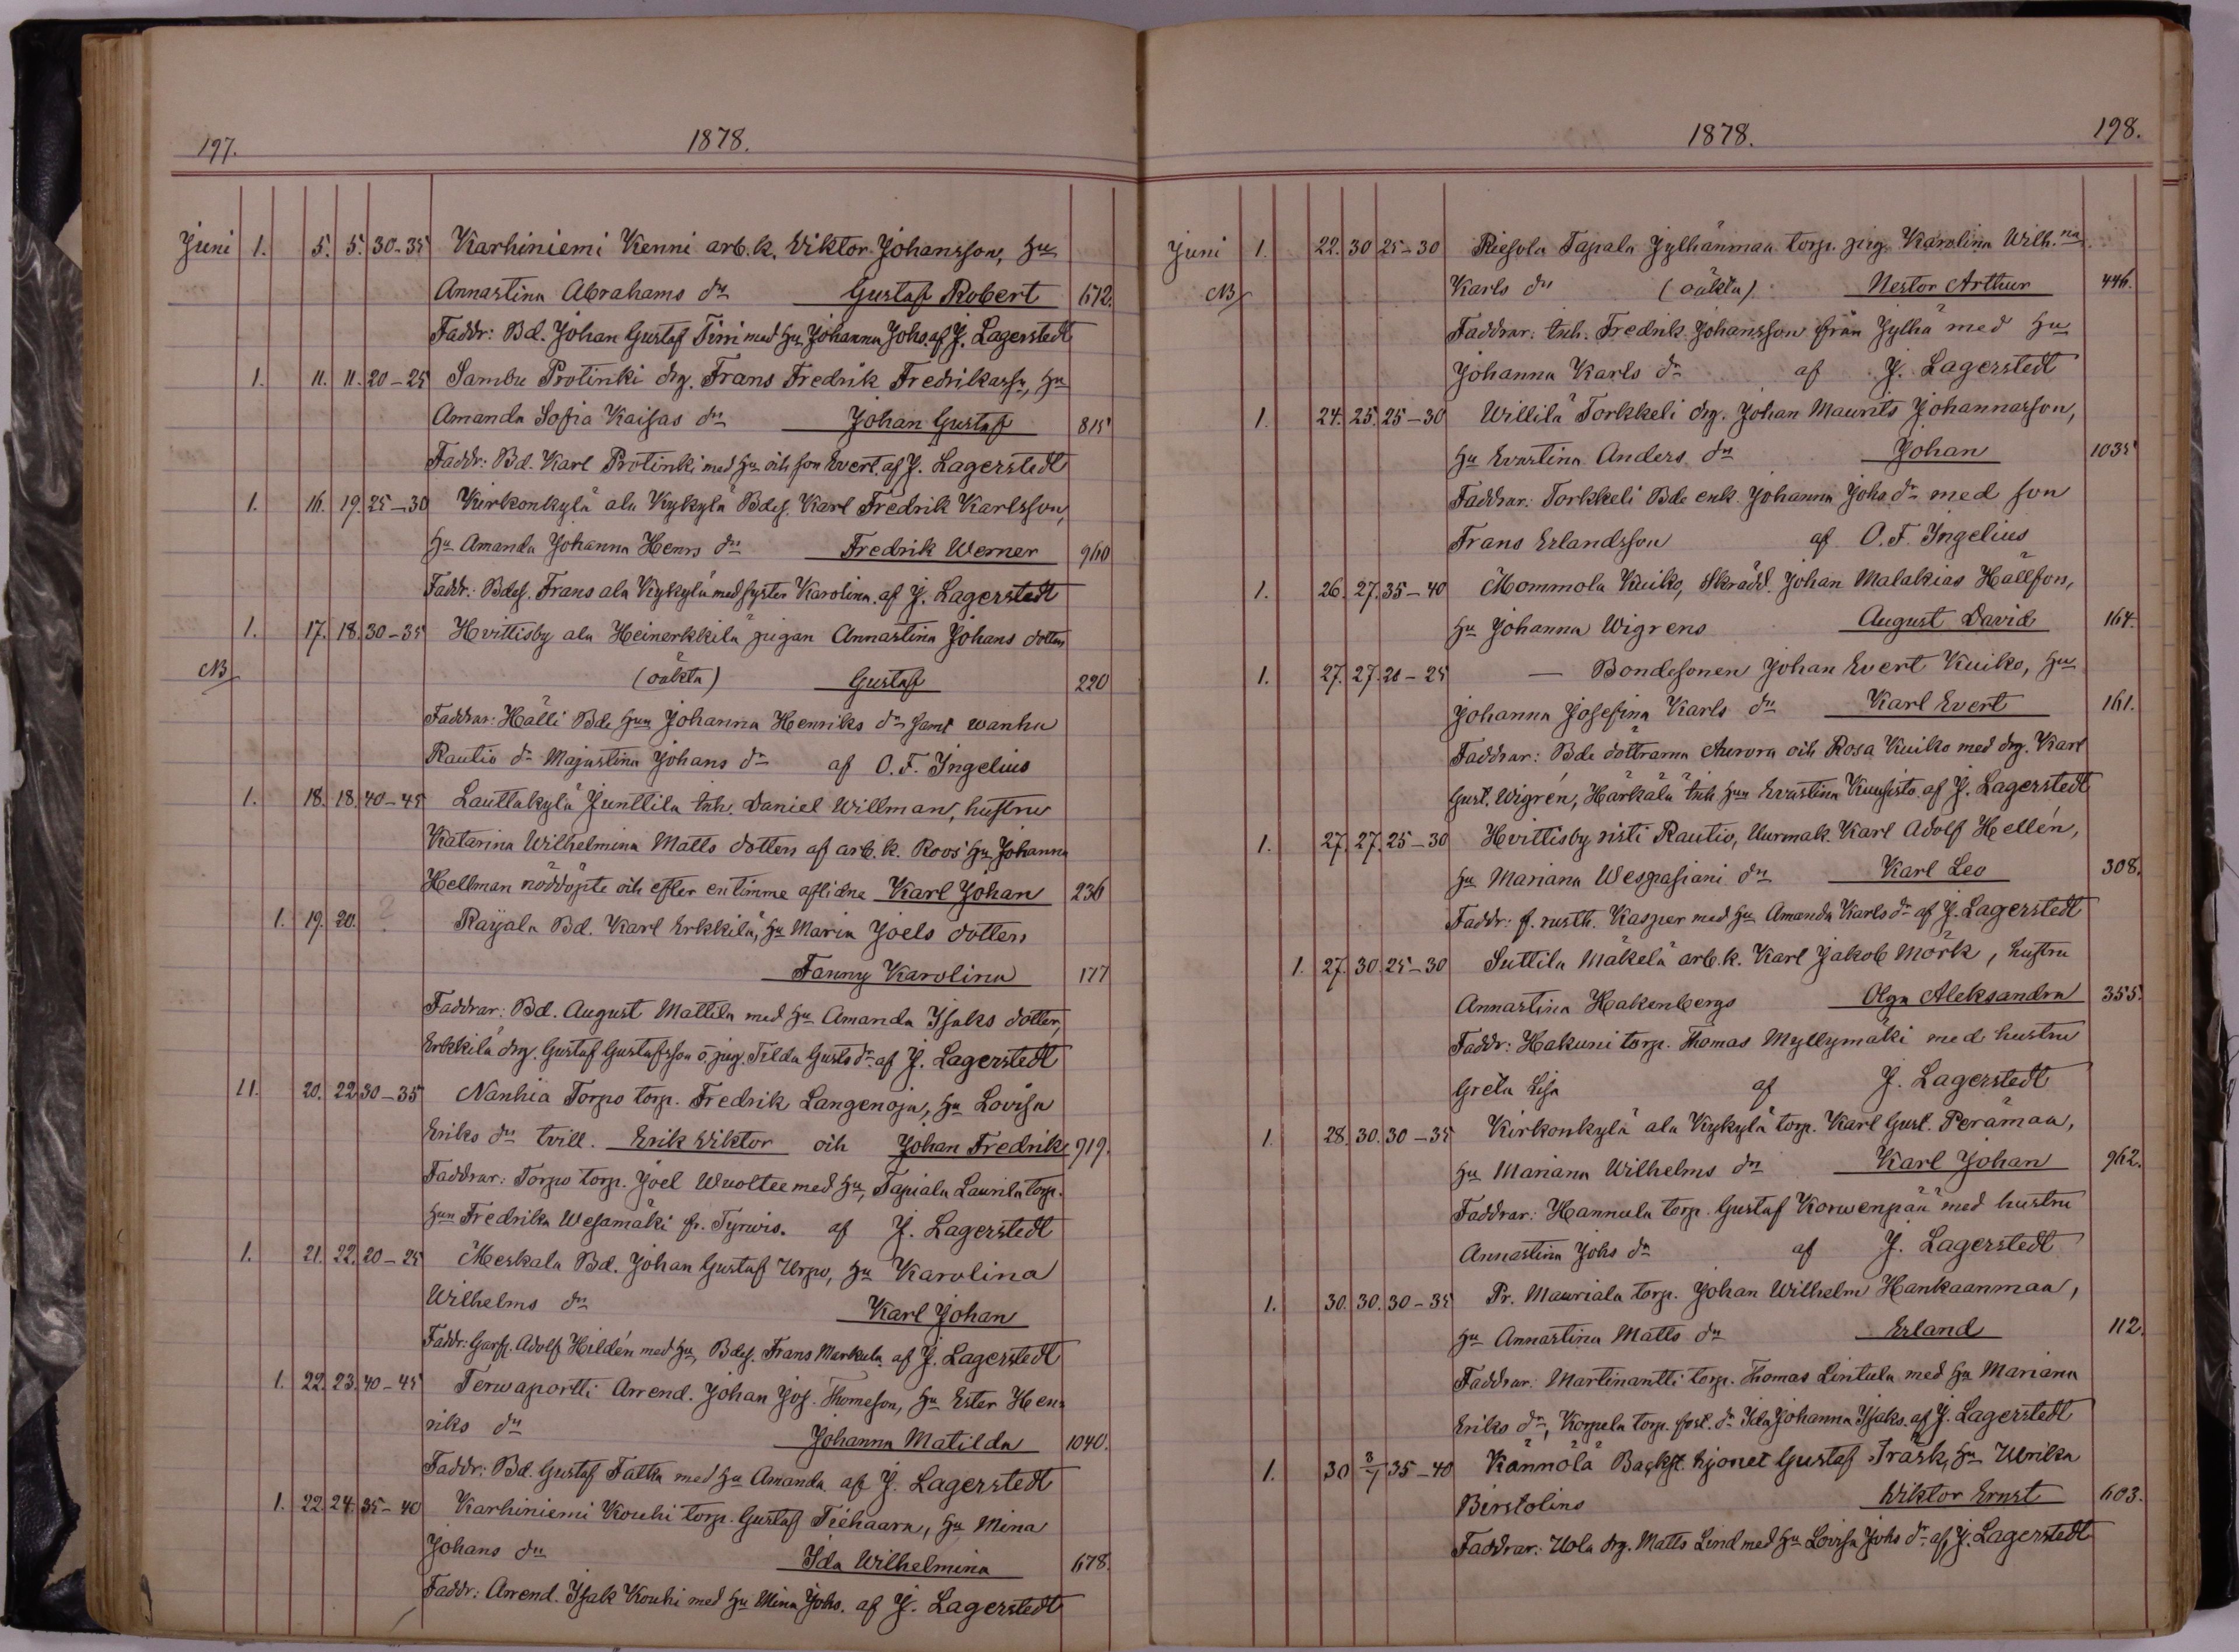 197.
1878.
Juni 1. 5. 5. 30-35 Karhiniemi Kenni arb.k. Viktor Johansson, hu
Annastina Abrahams dr Gustaf Robert 672.
Faddr: Bd. Johan Gustaf Tirri med hu Johanna Johs. af J. Lagerstedt
1. 11. 11. 20-25 Sambu Protinki drg. Frans Fredrik Fredrikassn, hu
Amanda Sofia Kaisas dr Johan Gustaf 815
Faddr: Bd. Karl Protinki med hu och son Evert. af J. Lagerstedt
1. 16. 19. 25-30 Kirkonkylä ala Kykylä Bdes. Karl Fredrik Karlsson,
hu Amanda Johanna Henrs dr Fredrik Werner 960
Faddr.: Bdes. Frans ala Kykylä med syster Karolina. af J. Lagerstedt
1. 17. 18. 30-35 Hvittisby ala Heinerkkilä pigan Annastina Johans dotters
NB (oäkta) Gustaf 220
Faddrar: Hälli Bde hun Johanna Henriks dr samt wanha
Rautio dr Majastina Johans dr af O. F. Ingelius
1. 18. 18. 40-45 Lauttakylä Junttila inh. Daniel Willman, hustru
Katarina Wilhelmina Matts dotters af arb.k. Roos' hu Johanna
Hellman nöddöpte och efter en timme aflidne Karl Johan 236
1. 19. 20. ? Raijala Bd. Karl Erkkilä, hu Maria Joels dotters
Fanny Karolina 177
Faddrar: Bd. August Mattila med hu Amanda Isaks dotter,
Erkkilä drg. Gustaf Gustafsson o. pig. Tilda Gusts dr. af J. Lagerstedt
11. 20. 22. 30-35 Nanhia Torpo torp. Fredrik Langenoja, hu Lovisa
Eriks dr tvill. Erik Viktor och Johan Fredrik 919.
Faddrar: Torpo torp. Joel Wuoltee med hu, Tapiala Laurila torp.
hun Fredrika Wesamäki fr. Tyrwis. af J. Lagerstedt
1. 21. 22. 20-25 Meskala Bd. Johan Gustaf Urpo, hu Karolina
Wilhelms dr Karl Johan
Faddr: Garf. Adolf Hildén med hu, Bdes. Frans Markula af J. Lagerstedt
1. 22. 23. 40-45 Terwaportti Arrend. Johan Jos. Thomeson, hu Ester Hen=
riks dr Johanna Matilda 1040.
Faddr: Bd. Gustaf Talka med hu Amanda af J. Lagerstedt
1. 22. 24. 35-40 Karhiniemi Kouhi torp. Gustaf Tiehaara, hu Mina
Johans dr Ida Wilhelmina 678.
Faddr: Arrend. Isak Kouhi med hu Mina Johs. af J. Lagerstedt
1878.
198.
Juni 1. 22. 30 25-30 Riesola Tapala Jylhänmaa torp. pig. Karolina Wilh.na
NB Karls dr (oäkta) Nestor Arthur 446.
Faddrar: inh. Fredrik Johansson från Jylhä med hu
Johanna Karls dr af J. Lagerstedt
1. 24. 25. 25-30 Willilä Torkkeli drg. Johan Maurits Johannasson,
hu Evastina Anders dr Johan 1035
Faddrar: Torkkeli Bde enk. Johanna Johs dr med son
Frans Erlandsson af O. F. Ingelius
1. 26. 27. 35-40 Mommola Kuiko, Skrädd. Johan Malakias Hällfon,
hu Johanna Wigrens August David 164.
1. 27. 27. 20-25 — Bondesonen Johan Evert Kuiko, hu
Johanna Josefina Karls dr Karl Evert 161.
Faddrar: Bde döttrarna Aurora och Rosa Kuiko med drg. Karl
Gust. Wigrén, Härkälä inh hun Evastina Kuusisto. af J. Lagerstedt
1. 27. 27. 25-30 Hvittisby risti Rautio, Uurmak. Karl Adolf Hellén,
hu Mariana Wespasiani dr Karl Leo 308.
Faddr: f. rusth. Kasper med hu Amanda Karls dr af J. Lagerstedt
1. 27. 30. 25-30 Suttila Mäkelä arb.k. Karl Jakob Mörk, hustru
Annastina Hakenbergs Olga Aleksandra 355.
Faddr: Hakuni torp. Thomas Myllymäki med hustru
Greta Lisa af J. Lagerstedt
1. 28. 30. 30-35 Kirkonkylä ala Kykylä torp. Karl Gust. Perämaa,
hu Mariana Wilhelms dr Karl Johan 962.
Faddrar: Hannula torp. Gustaf Korwenpää med hustru
Annastina Johs dr af J. Lagerstedt
1. 30. 30. 30-35 Pr. Mauriala torp. Johan Wilhelm Hankaanmaa,
hu Annastina Matts dr Erland 112.
Faddrar: Martinantti torp. Thomas Lintula med hu Mariana
Eriks dr, Korpela torp. fost. dr Ida Johanna Isaks. af J. Lagerstedt
1. 30 3/7 35-40 Kännölä Backst. hjonet Gustaf Träsk, hu Ulrika
Birstolins Wiktor Ernst 603.
Faddrar: Uola drg. Matts Lind med hu Lovisa Johs dr af J. Lagerstedt